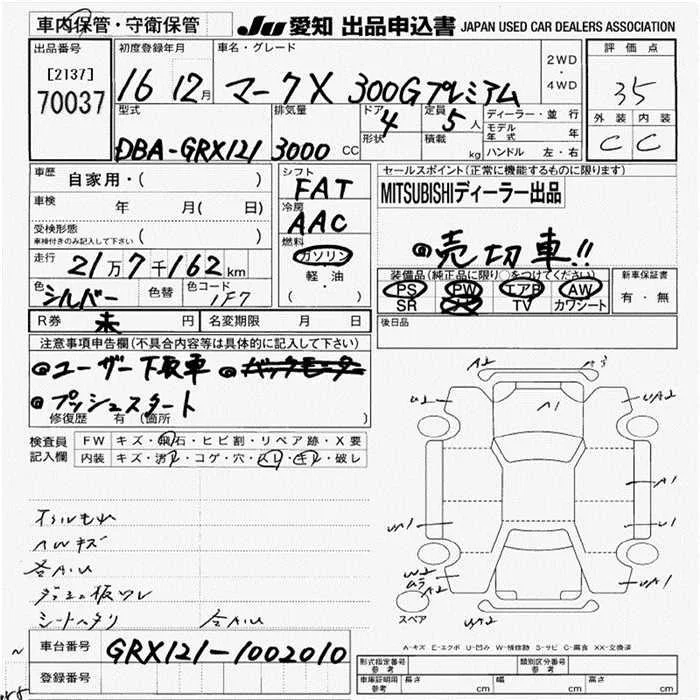 車内保管・守衛保管 JU 愛知 出品申込書 JAPAN USED CAR DEALERS ASSOCIATION
出品番号 初度登録年月 車名・グレード 2WD・4WD 評価点
[2137]
70037 16 12月 マークX 300Gプレミアム 35
型式 排気量 ドア 4 定員 5人 ディーラー・並行 外装 内装
形状 積載 kg モデル年式 年 C C
DBA-GRX121 3000 CC ハンドル 左・右
車歴 自家用・( ) シフト FAT セールスポイント(正常に機能するものに限ります)
車検 年 月( 日) 冷房 AAC MITSUBISHIディーラー出品
受検形態 ( )
車検付きのみ記入して下さい
燃料 ガソリン 売切車!!
走行 21万7千162km 軽・油 装備品(純正品に限り○をつけてください) 新車保証書
色 シルバー 色替 色コード 1F7 ( ) PS PW エアB AW 有・無
SR TV カワシート
R券 未 円 名変期限 月 日 後日品
注意事項申告欄(不具合内容等は具体的に記入して下さい)
ユーザー下取車 バックモニター
プッシュスタート
修復歴 有 (箇所 )
検査員 FW キズ・飛石・ヒビ割・リペア跡・X要
記入欄 内装 キズ・汚レ・コゲ・穴・スレ・キレ・破レ
A2 A1 A1 A1 A2
スペア
A-キズ E-エクボ U-凹み W-補修跡 S-サビ C-腐食 XX-交換済
車台番号 GRX121-1002010
登録番号
形式指定番号 参考 類別区分番号 参考
車庫証明用 参考 長さ cm 幅 cm 高さ cm